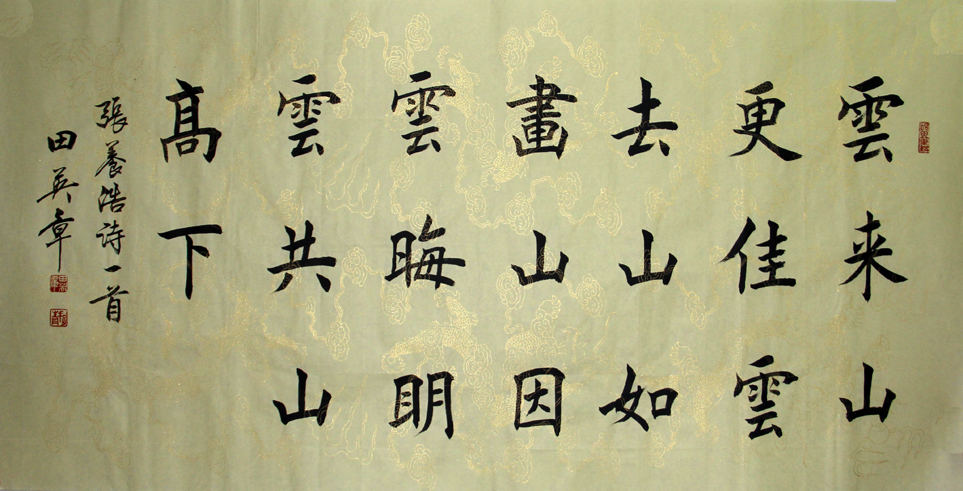 雲来山
更佳雲
去山如
畫山因
雲晦明
雲共山
高下
張養浩诗一首
田英章